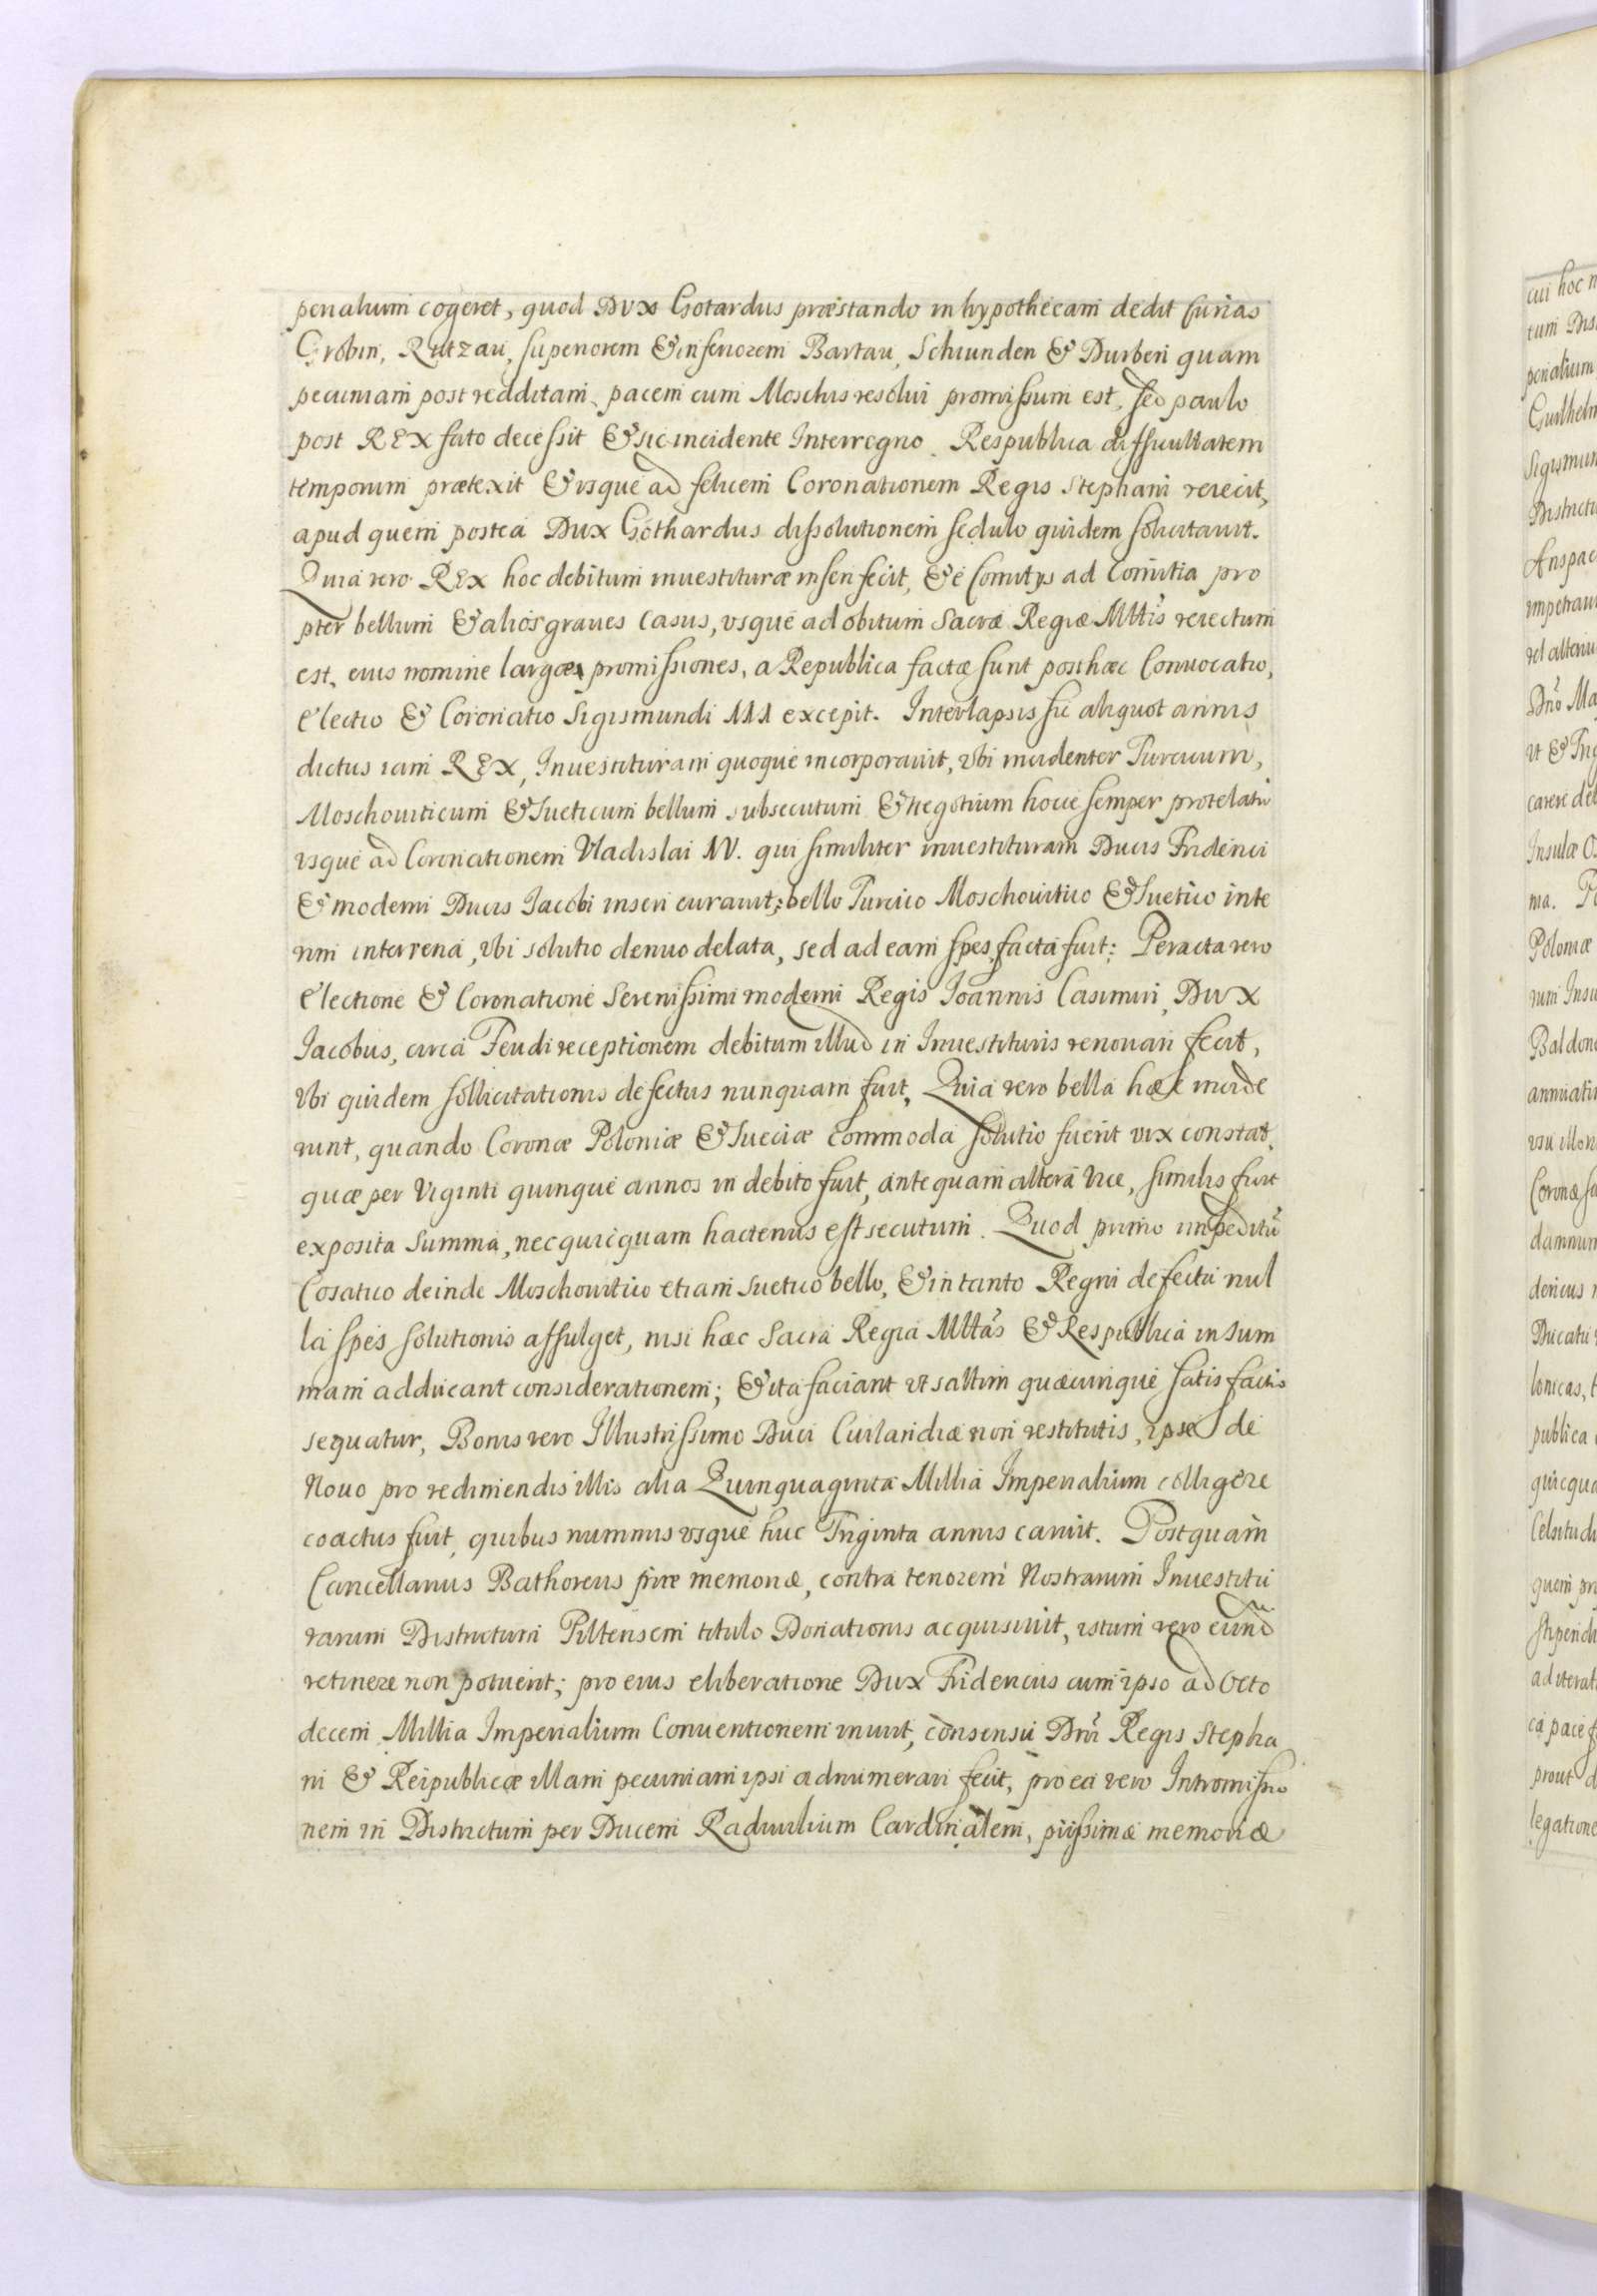 perialium cogeret, quod Dux Gotardus præstando in hypothecam dedit Curias
Grobin, Rutzau, superiorem & inferiorem Bartau, Schrunden & Durben quam
pecuniam post redditam pacem cum Moschis resolui promissum est, sed paulo
post REX fato decessit & sic incidente Interregno Respublica difficultatem
temporum prætexit & vsque ad felicem Coronationem Regis Stephani reiecit,
apud quem postea Dux Gothardus dissolutionem sedulo quidem solicitauit.
Quia vero REX hoc debitum inuestituræ inseri fecit, & é Comitys ad Comitia pro
pter bellum & alios graues casus, vsque ad obitum Sacræ Regiæ Mttis reiectum
est, eius nomine largæ promissiones, a Republica factæ sunt posthæc Conuocatio,
Electio & Coronatio Sigismundi III excepit. Interlapsis sic aliquot annis
dictus iam REX, Inuestituram quoque incorporauit, vbi incidenter Turcicum,
Moschouiticum & Sueticum bellum subsecutum & negotium hocce semper protelatū
vsque ad Coronationem Vladislai IV. qui similiter inuestituram Ducis Friderici
& moderni Ducis Jacobi inseri curauit; bello Turcico Moschouitico & Suetico inte
rim interrena, vbi solutio denuo delata, sed ad eam spes facta fuit: Peracta vero
Electione & Coronatione Serenissimi moderni Regis Joannis Casimiri, DUX
Jacobus, circa Feudi receptionem debitum illud in Inuestituris renouari fecit,
vbi quidem sollicitationis defectus nunquam fuit, Quia vero bella hæc incide
runt, quando Coronæ Poloniæ & Sueciæ commoda solutio fuerit vix constat,
quæ per Viginti quinque annos in debito fuit, antequam altera vice, similis fuit
exposita Summa, nec quicquam hactenus est secutum. Quod primo impeditū
Cosatico deinde Moschouitico etiam Suetico bello, & in tanto Regni defectu nul
la spes solutionis affulget, nisi hæc Sacra Regia Mttas & Respublica in sum
mam adducant considerationem; & ita faciant vt saltim quæcunque satisfactio
sequatur, Bonis vero Illustrissimo Duci Curlandiæ non restitutis, ipse de
Nouo pro redimendis illis alia Quinquaginta Millia Imperialium colligere
coactus fuit, quibus nummis vsque huc Triginta annis caruit. Postquam
Cancellarius Bathoreus piæ memoriæ, contra tenorem Nostrarum Inuestitu
rarum Districtum Piltensem titulo Donationis acquisiuit, istum vero eund
retinere non potuerit; pro eius eliberatione Dux Fridericus cum ipso ad Octo
decem Millia Imperialium Conuentionem iniuit, consensu Dnī Regis Stepha
ni & Reipublicæ illam pecuniam ipsi adnumerari fecit, pro ea vero Intromissio
nem in Districtum per Ducem Radiuilium Cardinalem, piissimæ memoriæ